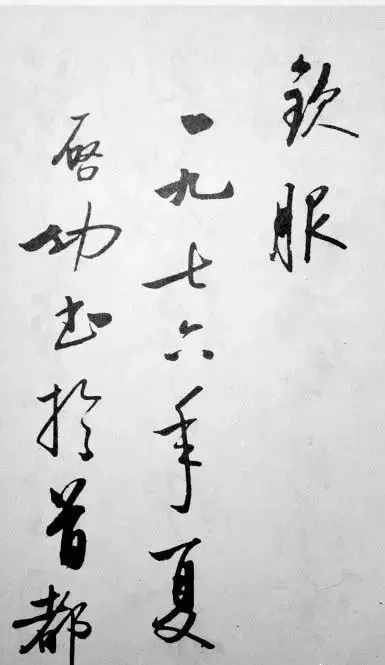 钦服
一九七六年夏
启功书于首都